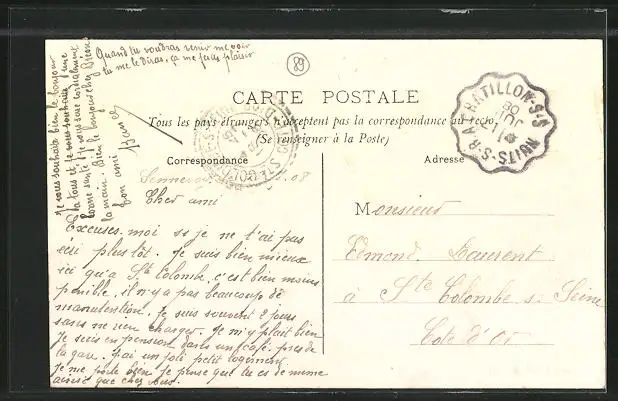 Quand tu voudras venir me voir
tu me le diras, ça me fera plaisir
89
Je vous souhaite bien le bonjour
à tous et je vous souhaite une
bonne santé. Je vous serre cordialement
la main. Bien le bonjour chez
ton ami
CARTE POSTALE
Tous les pays étrangers n'acceptent pas la correspondance au recto.
(Se renseigner à la Poste)
Correspondance
Adresse
CHATILLON-S-S
NUITS-S-RA
JUIL
08
08
Cher ami
Excuses-moi si je ne t'ai pas
écri plus tôt. Je suis bien mieux
ici qu'a Ste Colombe, c'est bien moins
pénible, il n'y a pas beaucoup de
manutention. Je suis souvent 2 jours
sans ne rien charger. Je m'y plait bien
Je suis en pension dans un café près de
la gare. J'ai un joli petit logement.
Je me porte bien Je pense que tu es de meme
ainsi que chez vous.
Monsieur
Edmond Laurent
à Ste Colombe s. Seine
Cote d'Or